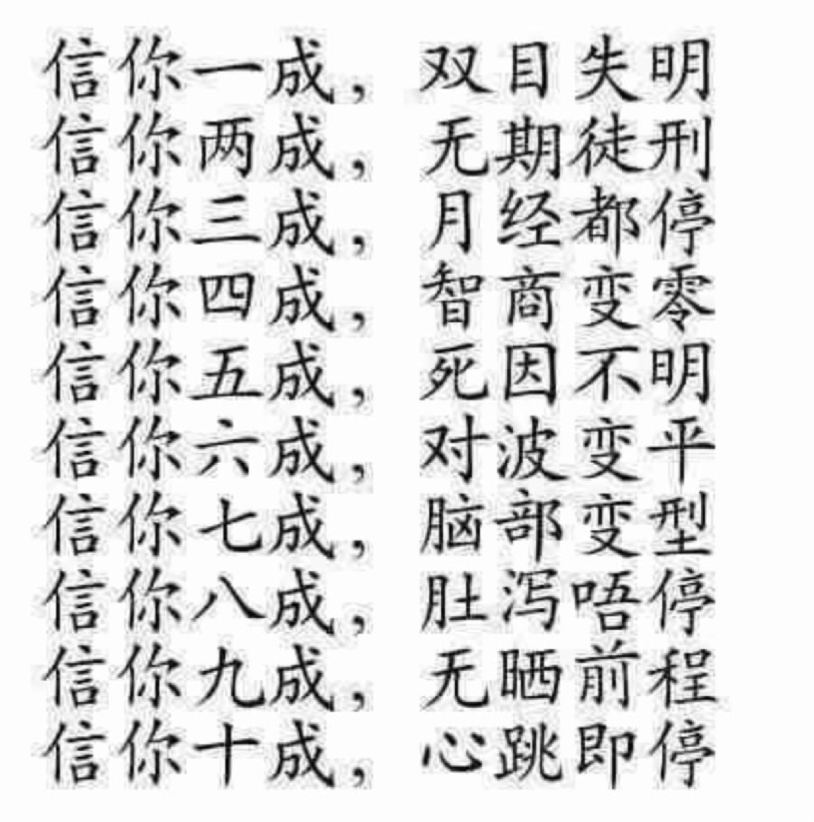 信你一成，双目失明
信你两成，无期徒刑
信你三成，月经都停
信你四成，智商变零
信你五成，死因不明
信你六成，对波变平
信你七成，脑部变型
信你八成，肚泻唔停
信你九成，无晒前程
信你十成，心跳即停